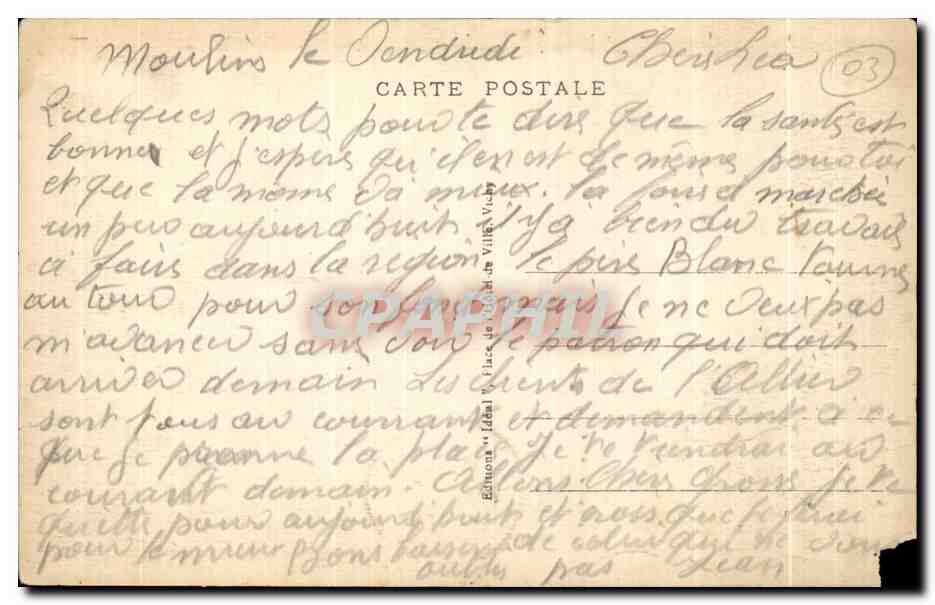 Moulins le Vendredi Chère Léa
03
CARTE POSTALE
Quelques mots pour te dire que la santé est
bonne et j'espère qu'il en est de même pour toi
et que la mome va mieux. La marchée
un peu aujourd'huit il y a bien du travail
à faire dans la région le père Blanc tourne
autour pour son fils mais je ne veux pas
m'avancer sans voir le patron qui doit
arriver demain Les clients de l'Allier
sont tous au courrant et demandent à ce
que je prenne la place Je te tiendrai au
courant demain. Allons Chère Grosse je te
quitte pour aujourd'huit et crois que je ferai
pour le mieux Bons baisers de celui qui ne vous
oublie pas Jean
Editions "Idéal", Place de l'Hôtel de Ville, Vichy
CPAPHIL